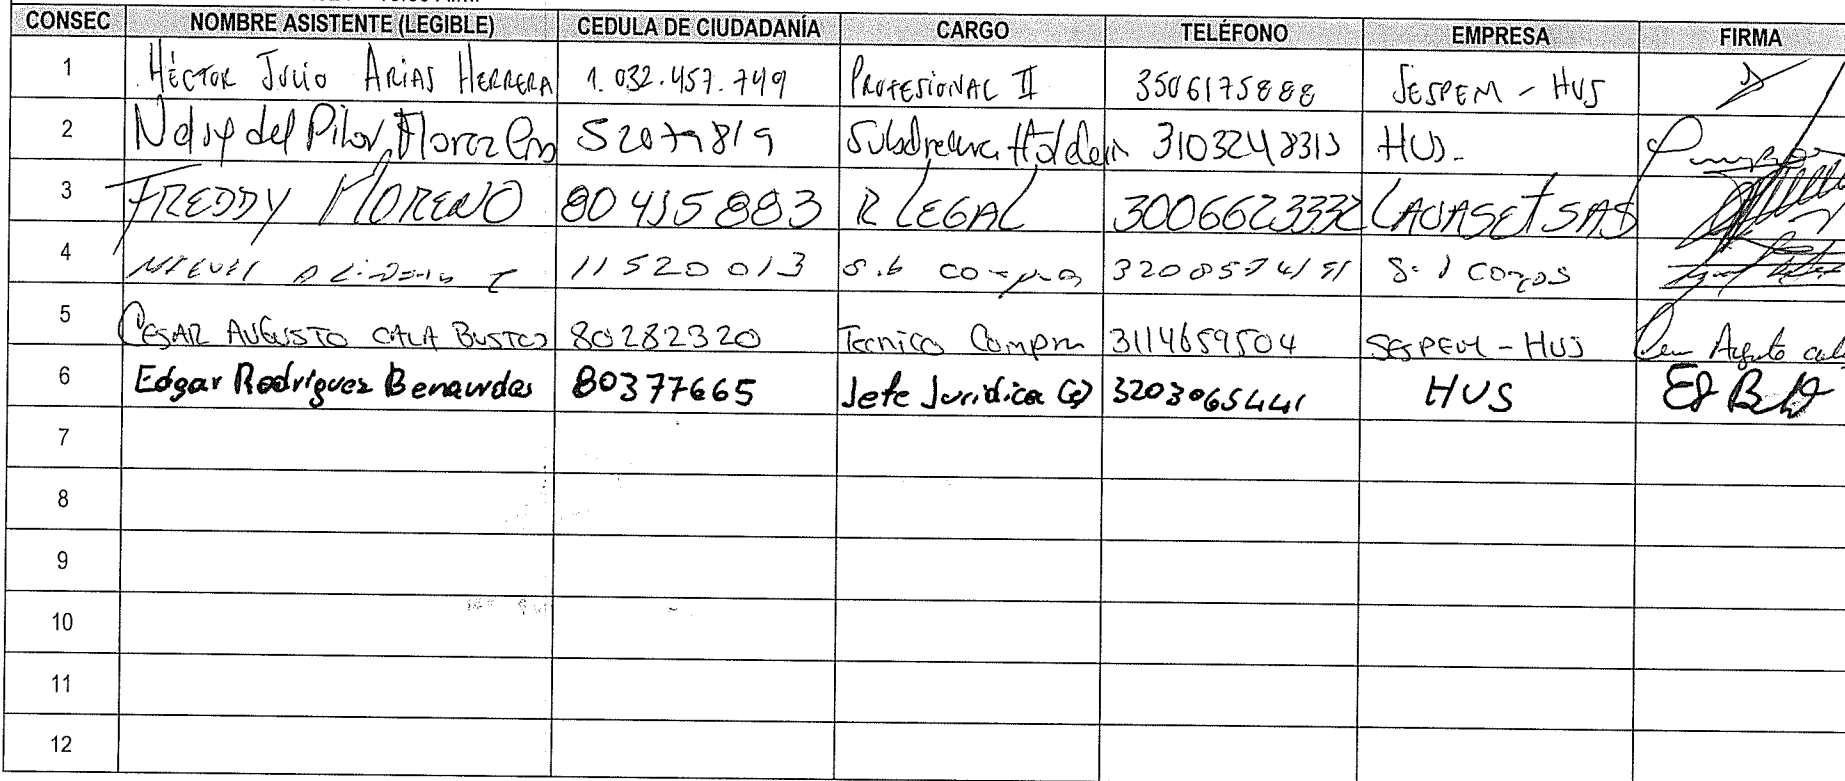 CONSEC NOMBRE ASISTENTE (LEGIBLE) CEDULA DE CIUDADANÍA CARGO TELÉFONO EMPRESA FIRMA
1 HÉCTOR JULIO ARIAS HERRERA 1.032.457.749 PROFESIONAL II 3506175888 SESPEM - HUS
2 del Pilar Florez HUS.
3 FREDDY MORENO 80415883 R LEGAL 3006623332 LAVASET SAS
4 11520013
5 CESAR AUGUSTO CALA BUSTOS 80282320 Tecnico Compra 3114659504 SESPEM - HUS
6 Edgar Rodriguez Benavides 80377665 Jefe Juridica (e) 3203065441 HUS
7
8
9
10
11
12